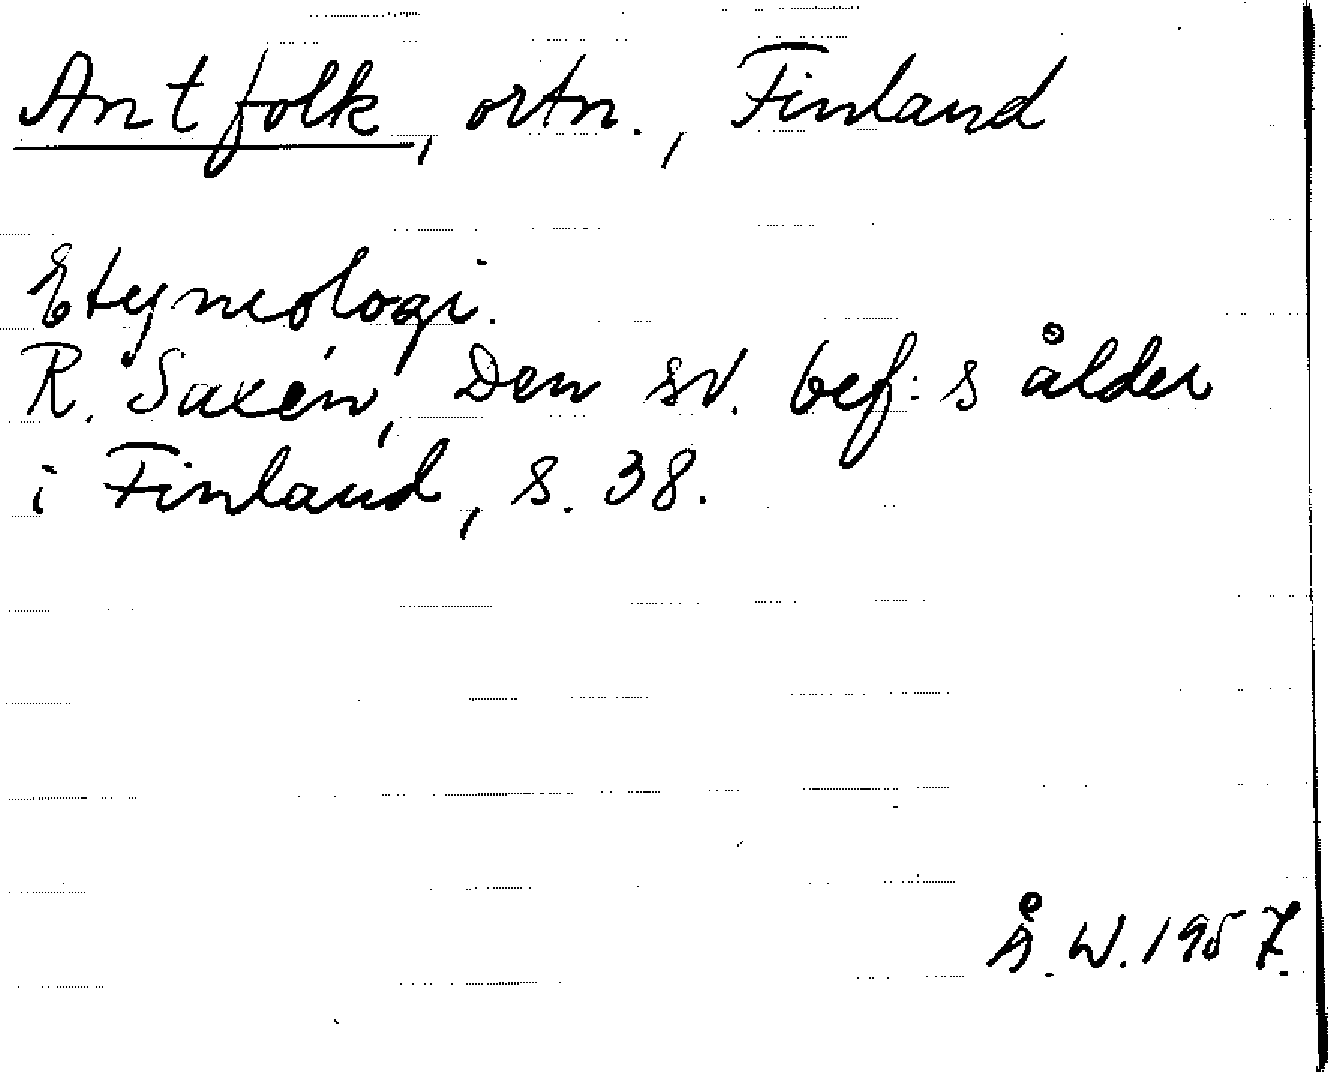 Antfolk, ortn., Finland
Etymologi.
R. Saxén, Den sv. bef:s ålder
i Finland, s. 38.
Å. W. 1957.